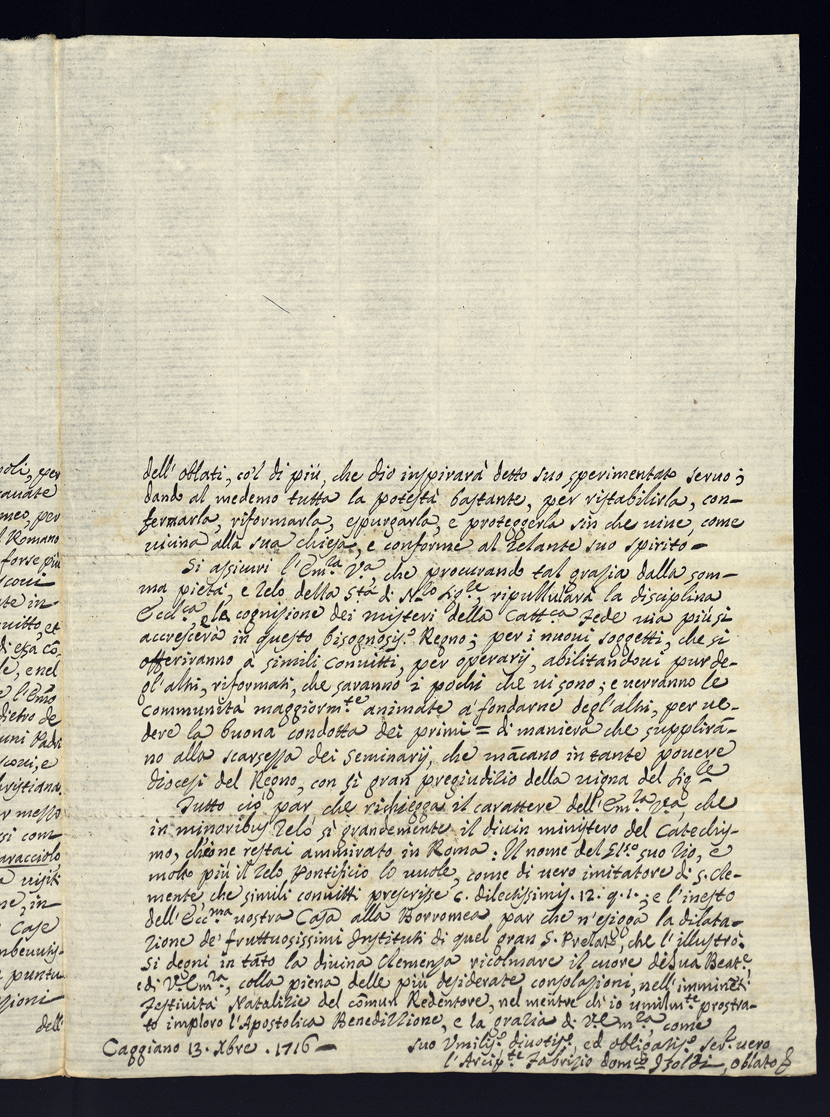 dell' oblati, co'l di più, che dio inspirarà detto suo sperimentato seruo;
dando al medemo tutta la potestà bastante, per ristabilirla, con-
fermarla, riformarla, espurgarla, e proteggerla sin che uiue, come
uicina alla sua chiesa, e conforme al Zelante suo spirito -
Si assicuri l'Em.ra V.ra, che procurando tal grazia dalla som-
ma pietà, e zelo della S.tà di N.ro Sig.re, ripullularà la disciplina
Eccl.ca, e le cognizione dei misteri della Catt.ca Fede uia più si
accrescerà in questo bisognosis.o Regno; per i nuoui soggetti, che si
offeriranno a simili conuitti, per operarij, abilitandoui pur de-
gl'altri, riformati, che saranno i pochi che ui sono; e uerranno le
communità maggiorm.te animate a' fondarne degl'altri, per ue-
dere la buona condotta dei primi = di maniera che supplirā-
no alla scarsezza dei Seminarij, che mācano in tante pouere
diocesi del Regno, con sì gran pregiudizio della uigna del Sig.re
Tutto ciò par che richiegga il carattere dell'Em.ra V.ra, che
in minoribus zelò sì grandemente il diuin ministero del Catechis-
mo, ch'ione restai ammirato in Roma: Il nome del suo Zio, e
molto più il zelo Pontificio lo uuole, come di uero imitatore di S. Cle-
mente, che simili conuitti prescrisse c. dilectissimis. 12. q. 1.; e l'inesto
dell'Ecc.ma uostra Casa alla Borromea, par che n'esigga la dilata-
zione de' fruttuosissimi Instituti di quel gran S. Prelato, che l'illustrò.
Si degni in tāto la diuina Clemenza ricolmare il cuore de Sua Beat.e
e di V.Em.ra, colla piena delle più desiderate consolazioni, nell'imminēti
Festiuità Natalizie del cōmun Redentore, nel mentre ch'io umilm.te prostra-
to imploro l'Apostolica Benedizzione, e la grazia di V.Em.ra, come
Caggiano 13. Xbre. 1716 - suo Vmilis.o diuotis.o, ed obligatis.o ser.e uero
l'Arcip.te Fabrizio dom.co Isoldi, oblato